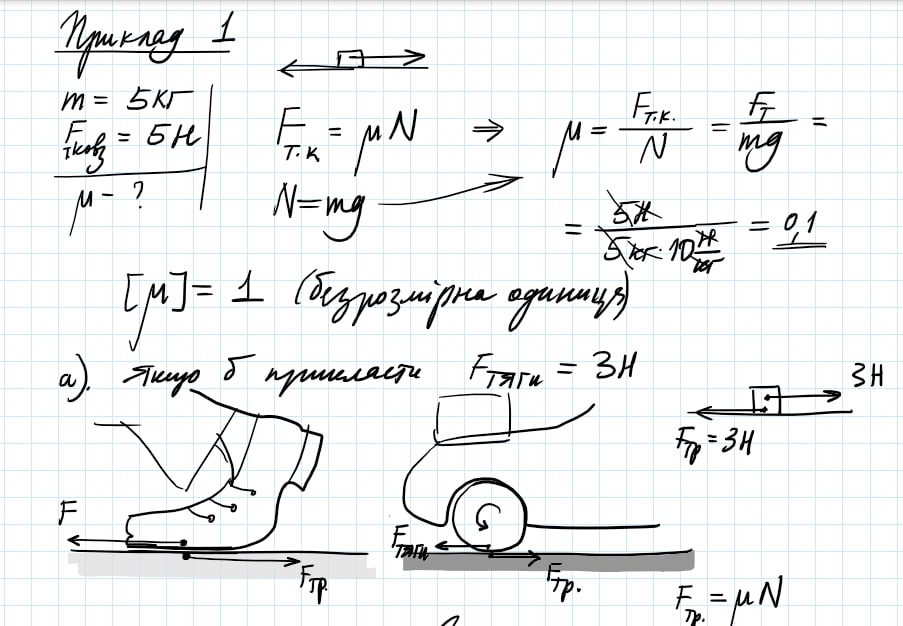 Приклад 1
m = 5кг
Fтковз = 5Н
μ - ?
Fт.к = μN ⇒ μ = Fт.к. / N = Fт / mg =
N = mg
= 5Н / 5кг · 10 Н/кг = 0,1
[μ] = 1 (безрозмірна одиниця)
а). Якщо б прикласти Fтяги = 3Н
3Н
Fтр = 3Н
F
Fтр.
Fтяги
Fтр.
Fтр. = μN